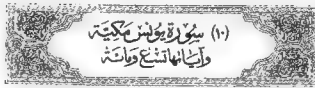 (١٠) سُورَة يُونُسَ مَكِيَّة
وَآيَاتُهَا تِسْعٌ وَمِائَة